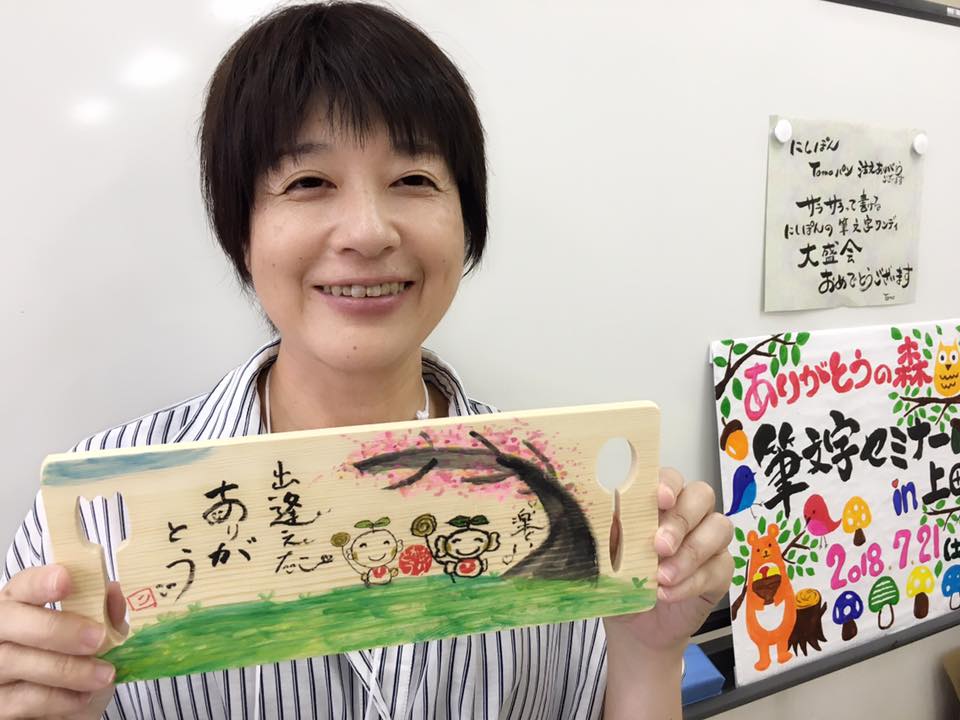 出逢えた
ありが
とう
楽しい
にしぽん
Tomoパン 注文ありがとう
ございます
サラサラって書ける
にしぽんの筆文字ワンディ
大盛会
おめでとうございます
Tomo
ありがとうの森
筆文字セミナー
in 上田
2018.7.21(土